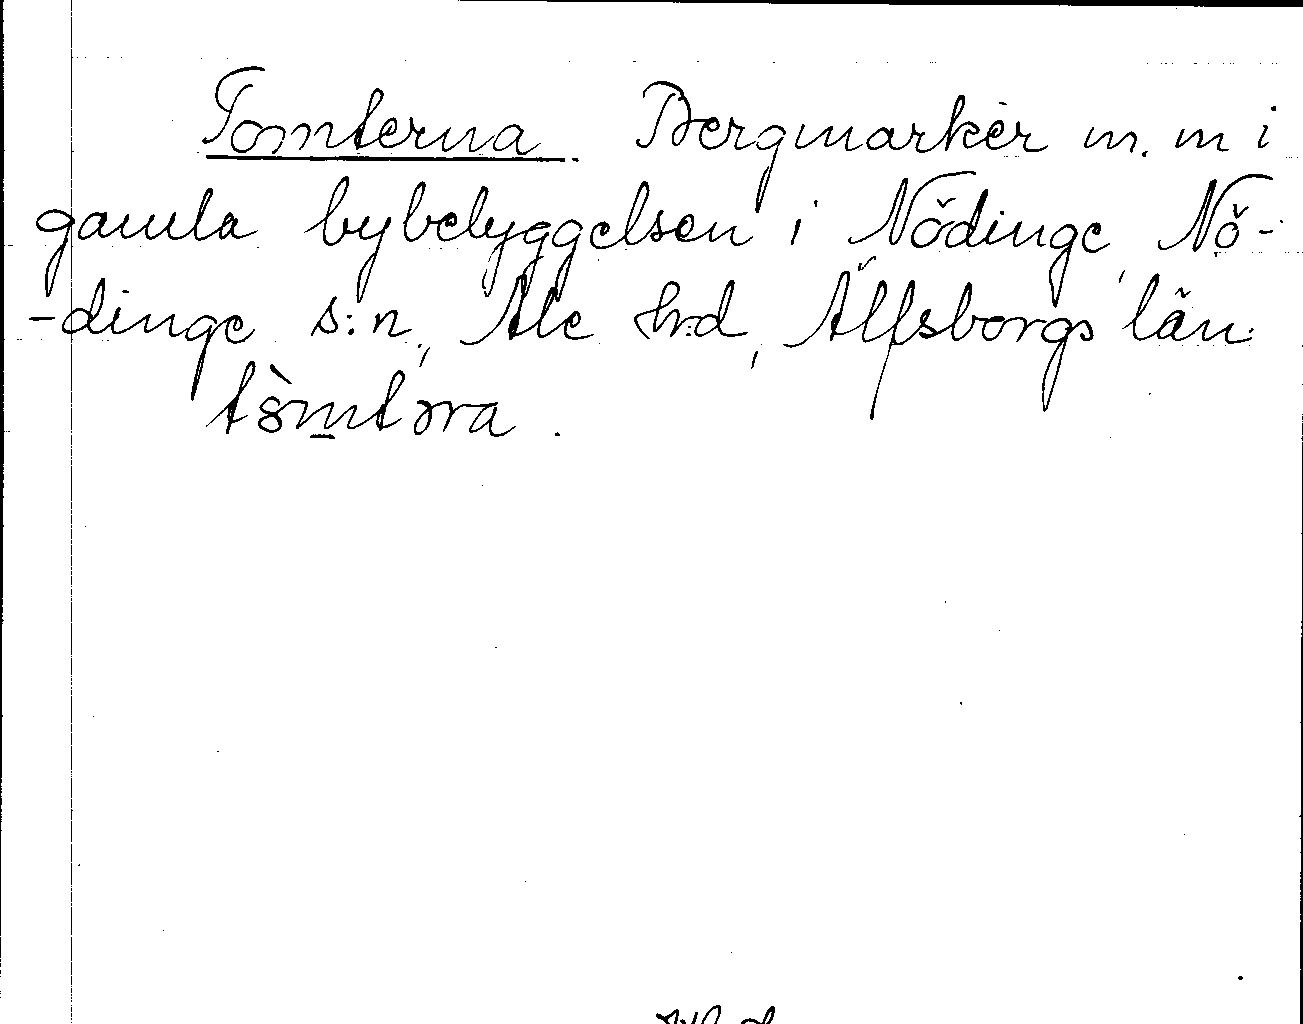 Tomterna. Bergmarker m. m i
gamla bybebyggelsen i Nödinge, Nö-
-dinge s:n, Ale hrd, Älfsborgs län
tòmtəra.